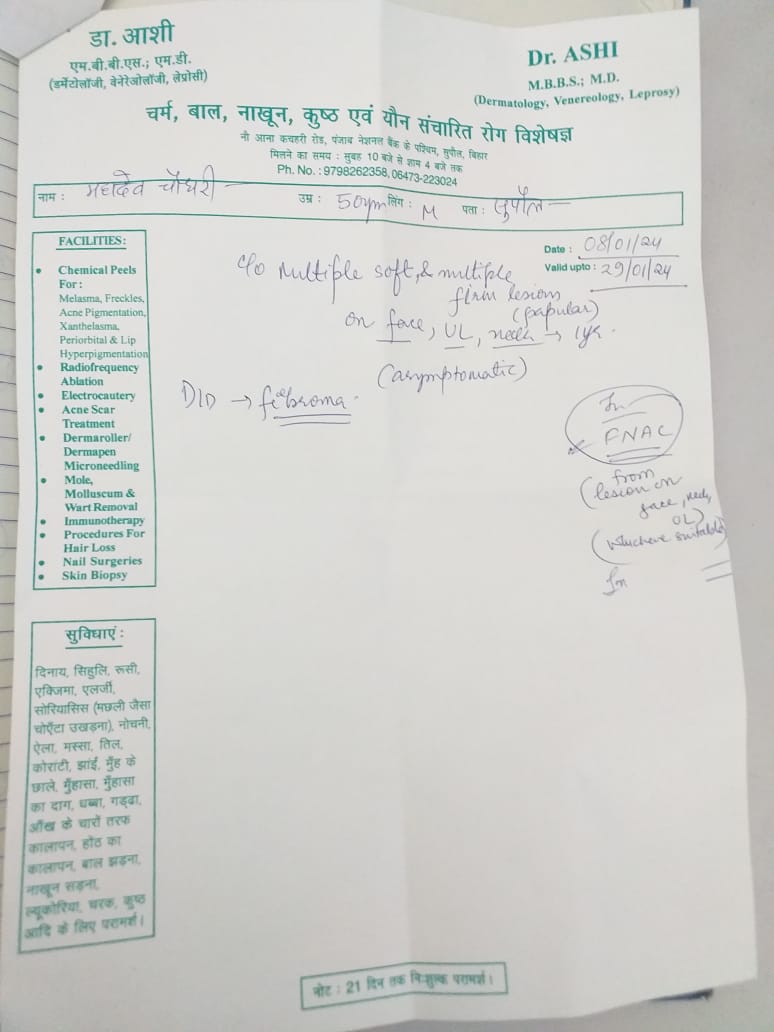 डा. आशी
एम.बी.बी.एस.; एम.डी.
(डर्मेटोलॉजी, वेनेरेओलॉजी, लेप्रोसी)
Dr. ASHI
M.B.B.S.; M.D.
(Dermatology, Venereology, Leprosy)
चर्म, बाल, नाखून, कुष्ठ एवं यौन संचारित रोग विशेषज्ञ
नौ आना कचहरी रोड, पंजाब नेशनल बैंक के पश्चिम, सुपौल, बिहार
मिलने का समय : सुबह 10 बजे से शाम 4 बजे तक
Ph. No. : 9798262358, 06473-223024
नाम : महादेव चौधरी उम्र : 50 लिंग : M पता : सुपौल
Date : 08/01/24
Valid upto : 29/01/24
c/o Multiple soft, & multiple
firm lesions
(papular)
on face, UL, neck → 1yr.
(asymptomatic)
D/D → fibroma
FNAC
(from
lesion on
face, neck,
UL)
(whichever suitable)
FACILITIES:
• Chemical Peels
For :
Melasma, Freckles,
Acne Pigmentation,
Xanthelasma,
Periorbital & Lip
Hyperpigmentation
• Radiofrequency
Ablation
• Electrocautery
• Acne Scar
Treatment
• Dermaroller/
Dermapen
Microneedling
• Mole,
Molluscum &
Wart Removal
• Immunotherapy
• Procedures For
Hair Loss
• Nail Surgeries
• Skin Biopsy
सुविधाएं :
दिनाय, सिहुलि, रूसी,
एक्जिमा, एलर्जी,
सोरियासिस (मछली जैसा
चोएँटा उखड़ना), नोचनी,
ऐला, मस्सा, तिल,
कोरांटी, झांई, मुँह के
छाले, मुँहासा, मुँहासा
का दाग, धब्बा, गड्ढा,
आँख के चारों तरफ
कालापन, होंठ का
कालापन, बाल झड़ना,
नाखून सड़ना,
ल्यूकोरिया, चरक, कुष्ठ
आदि के लिए परामर्श।
नोट : 21 दिन तक निःशुल्क परामर्श।